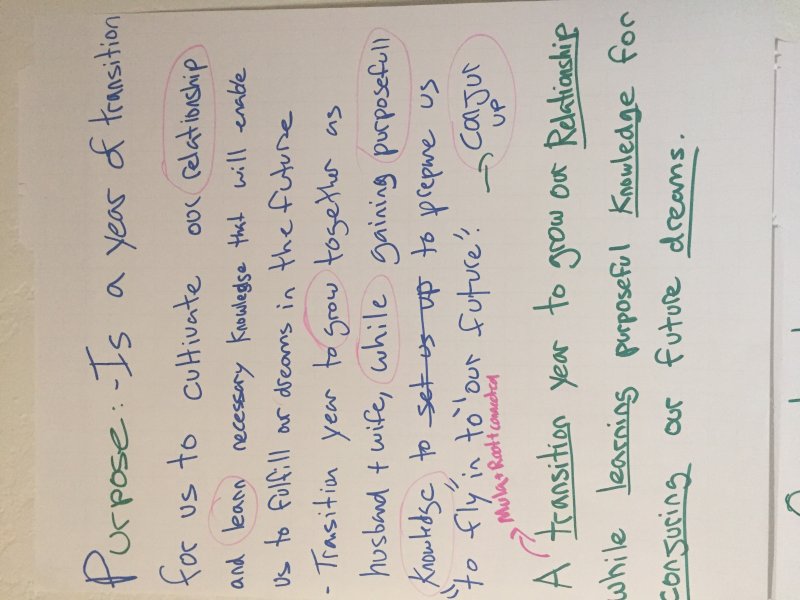 Purpose: - Is a year of transition
for us to cultivate our relationship
and learn necessary knowledge that will enable
us to fulfill our dreams in the future
- Transition year to grow together as
husband + wife, while gaining purposefull
knowledge to set us up to prepare us
"to fly" in to "our future". → conjur up
Mula + Root connected
A transition year to grow our Relationship
while learning purposeful knowledge for
conjuring our future dreams.